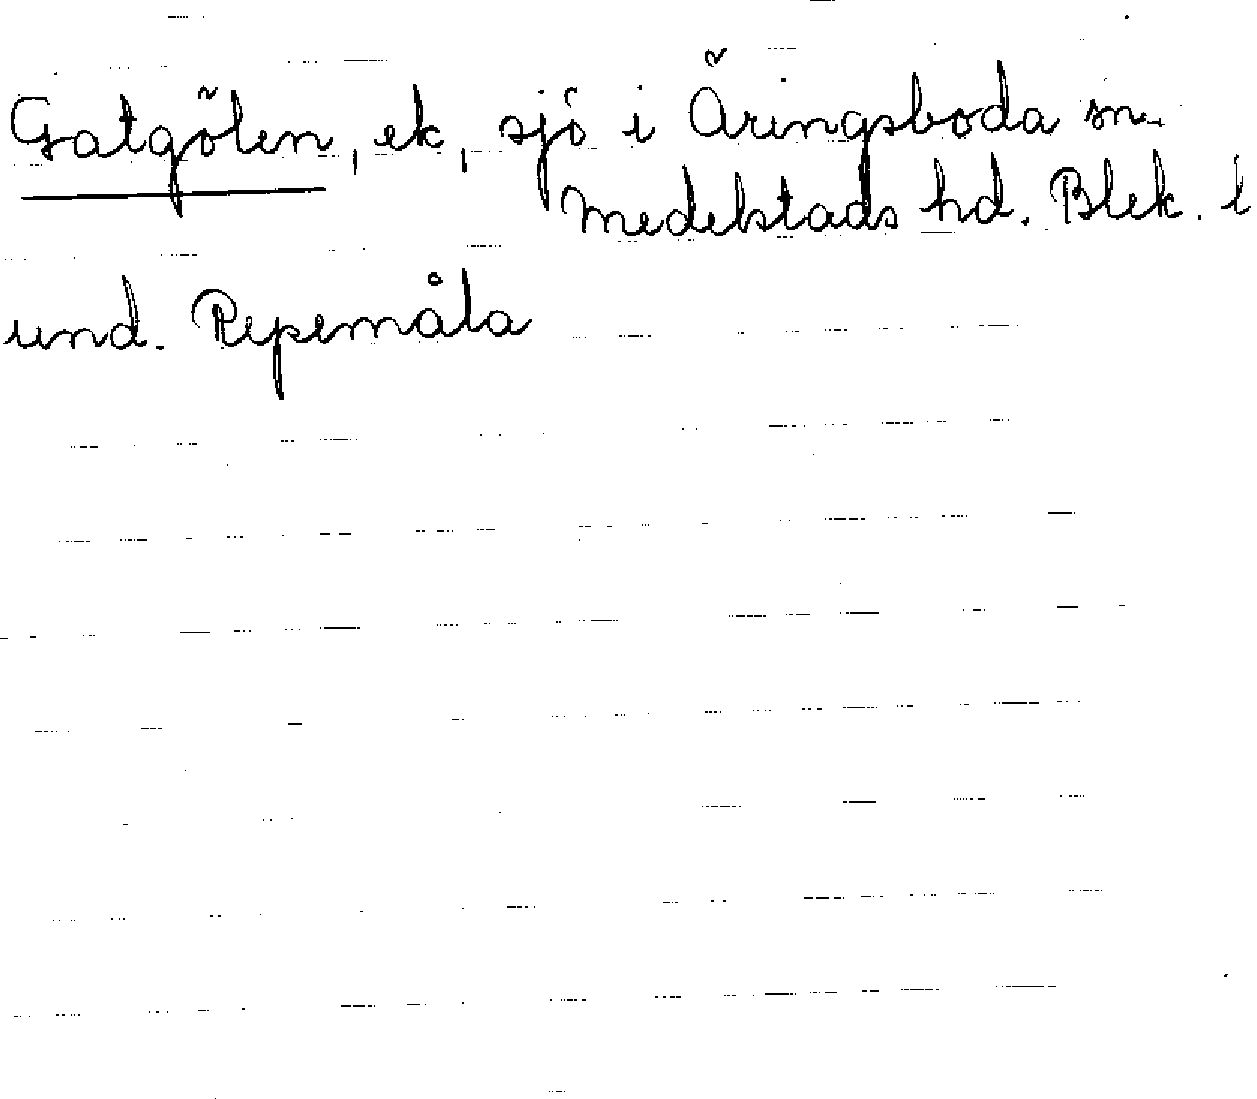 Gatgölen, ek, sjö i Äringsboda sn.
Medelstads hd. Blek. l
und. Repemåla